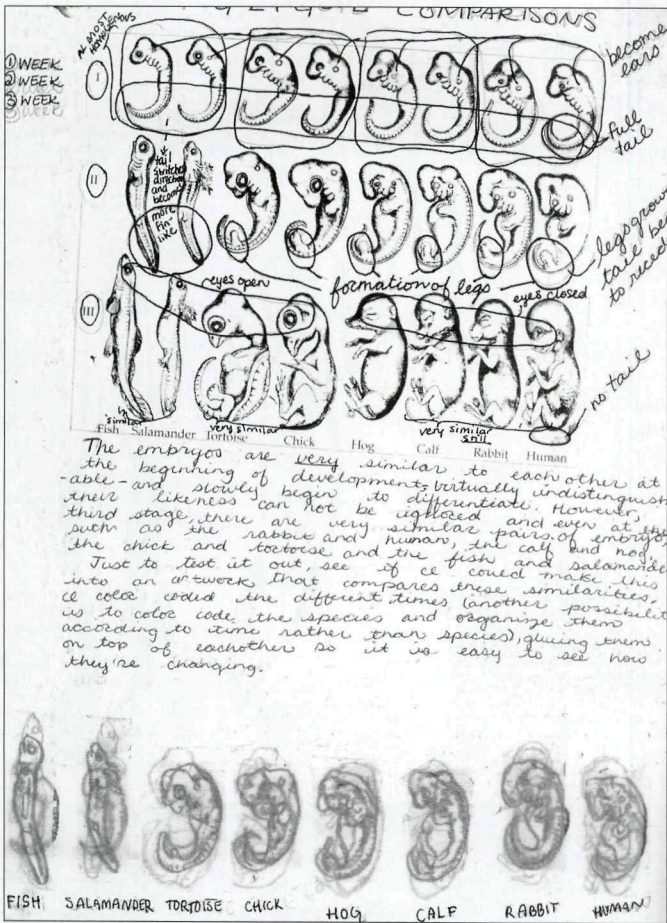 COMPARISONS
ALMOST
HOMOGENOUS
① WEEK
② WEEK
③ WEEK
become
ears
I
full
tail
II
tail
switched
direction
and
becomes
more
fin-
like
legs grow
tail be
to reced
formation of legs
III
eyes open
eyes closed
no tail
similar
very similar
very similar
still
Fish Salamander Tortoise Chick Hog Calf Rabbit Human
The embryos are very similar to each other at
the beginning of development, virtually indistinguish
-able- and slowly begin to differentiate. However,
their likeness can not be ignored and even at the
third stage, there are very similar pairs of embryos
such as the rabbit and human, the calf and hog
the chick and tortoise and the fish and salamande
Just to test it out, see if I could make this
into an artwork that compares these similarities.
I color coded the different times (another possibilit
is to color code the species and organize them
according to time rather than species), glueing them
on top of eachother so it is easy to see how
they're changing.
FISH SALAMANDER TORTOISE CHICK HOG CALF RABBIT HUMAN